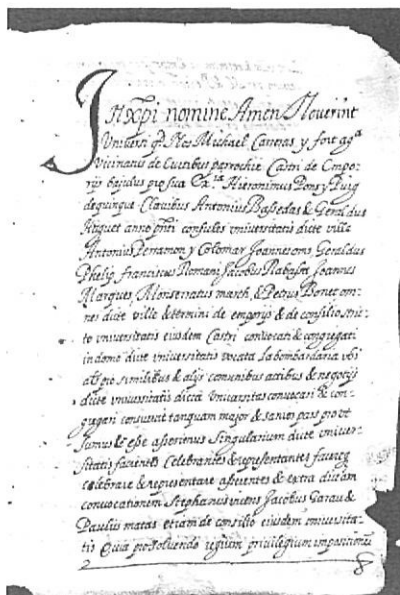 In xpi nomine Amen Noverint
Universi q Nos Michael Carreras y font aga
Vicinatus de Cinclibus parrochie Castri de Empo-
rijs bajulus pro sua Exia Hieronimus Pons y Puig
de quinque Clavibus Antonius Bassedas & Geraldus
anno pnti consules universitatis dicte ville
Antonius Perramon y Colomar Joannes oms Geraldus
Phelip franciscus Romani Jacobus Rabassa Joannes
Marques, Monserratus march, & Petrus Bonet om-
nes dicte ville & termini de emporijs & de consilio stric-
to universitatis eiusdem Castri convocati & congregati
in domo dicte universitatis vocata la bombardaria ubi
pro similibus & alijs comunibus actibus & negotijs
dicte universitatis dicta Universitas convocari & con-
gregari consuevit tanquam major & sanior pars prout
sumus & esse asserimus Singularium dicte univer-
sitatis facientes Celebrantes & representantes facere
celebrare & representare asserentes & extra dictam
convocationem Stephanus vicens Jacobus Garau &
Paulus matas etiam de consilio eiusdem universita-
tis Quia pro solvendo regium privilegium